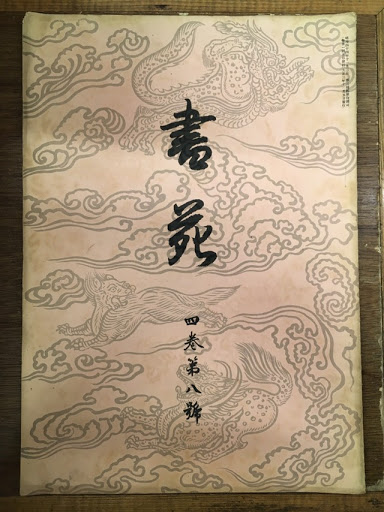 書苑
四卷第八號